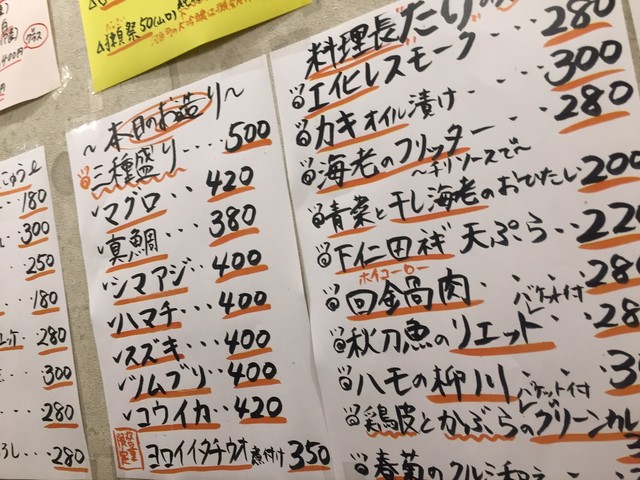 400円
獺祭50(山口)
280
料理長
エイヒレスモーク・・280
カキオイル漬け・・・300
海老のフリッター・・280
〜チリソースで〜
青菜と干し海老のおひたし 200
下仁田ネギ 天ぷら・・22
ホイコーロー
回鍋肉・・・・280
秋刀魚のリエット 28
バケット付
ハモの柳川・・3
鶏皮とかぶらのグリーンカレ
バケット付
春菊の
〜本日のお造り〜
三種盛り・・・500
マグロ・・・420
真鯛・・・380
シマアジ・・・400
ハマチ・・・400
スズキ・・・400
ツムブリ・・・400
コウイカ・・・420
ヨロイイタチウオ煮付け 350
180
300
250
180
280
300
280
280